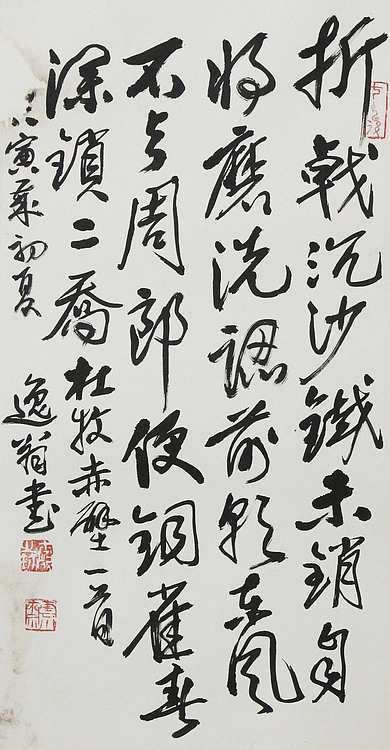 折戟沉沙鐵未銷自
将磨洗認前朝東風
不与周郎便銅雀春
深鎖二喬 杜牧赤壁一首
寅年初夏 逸翁書